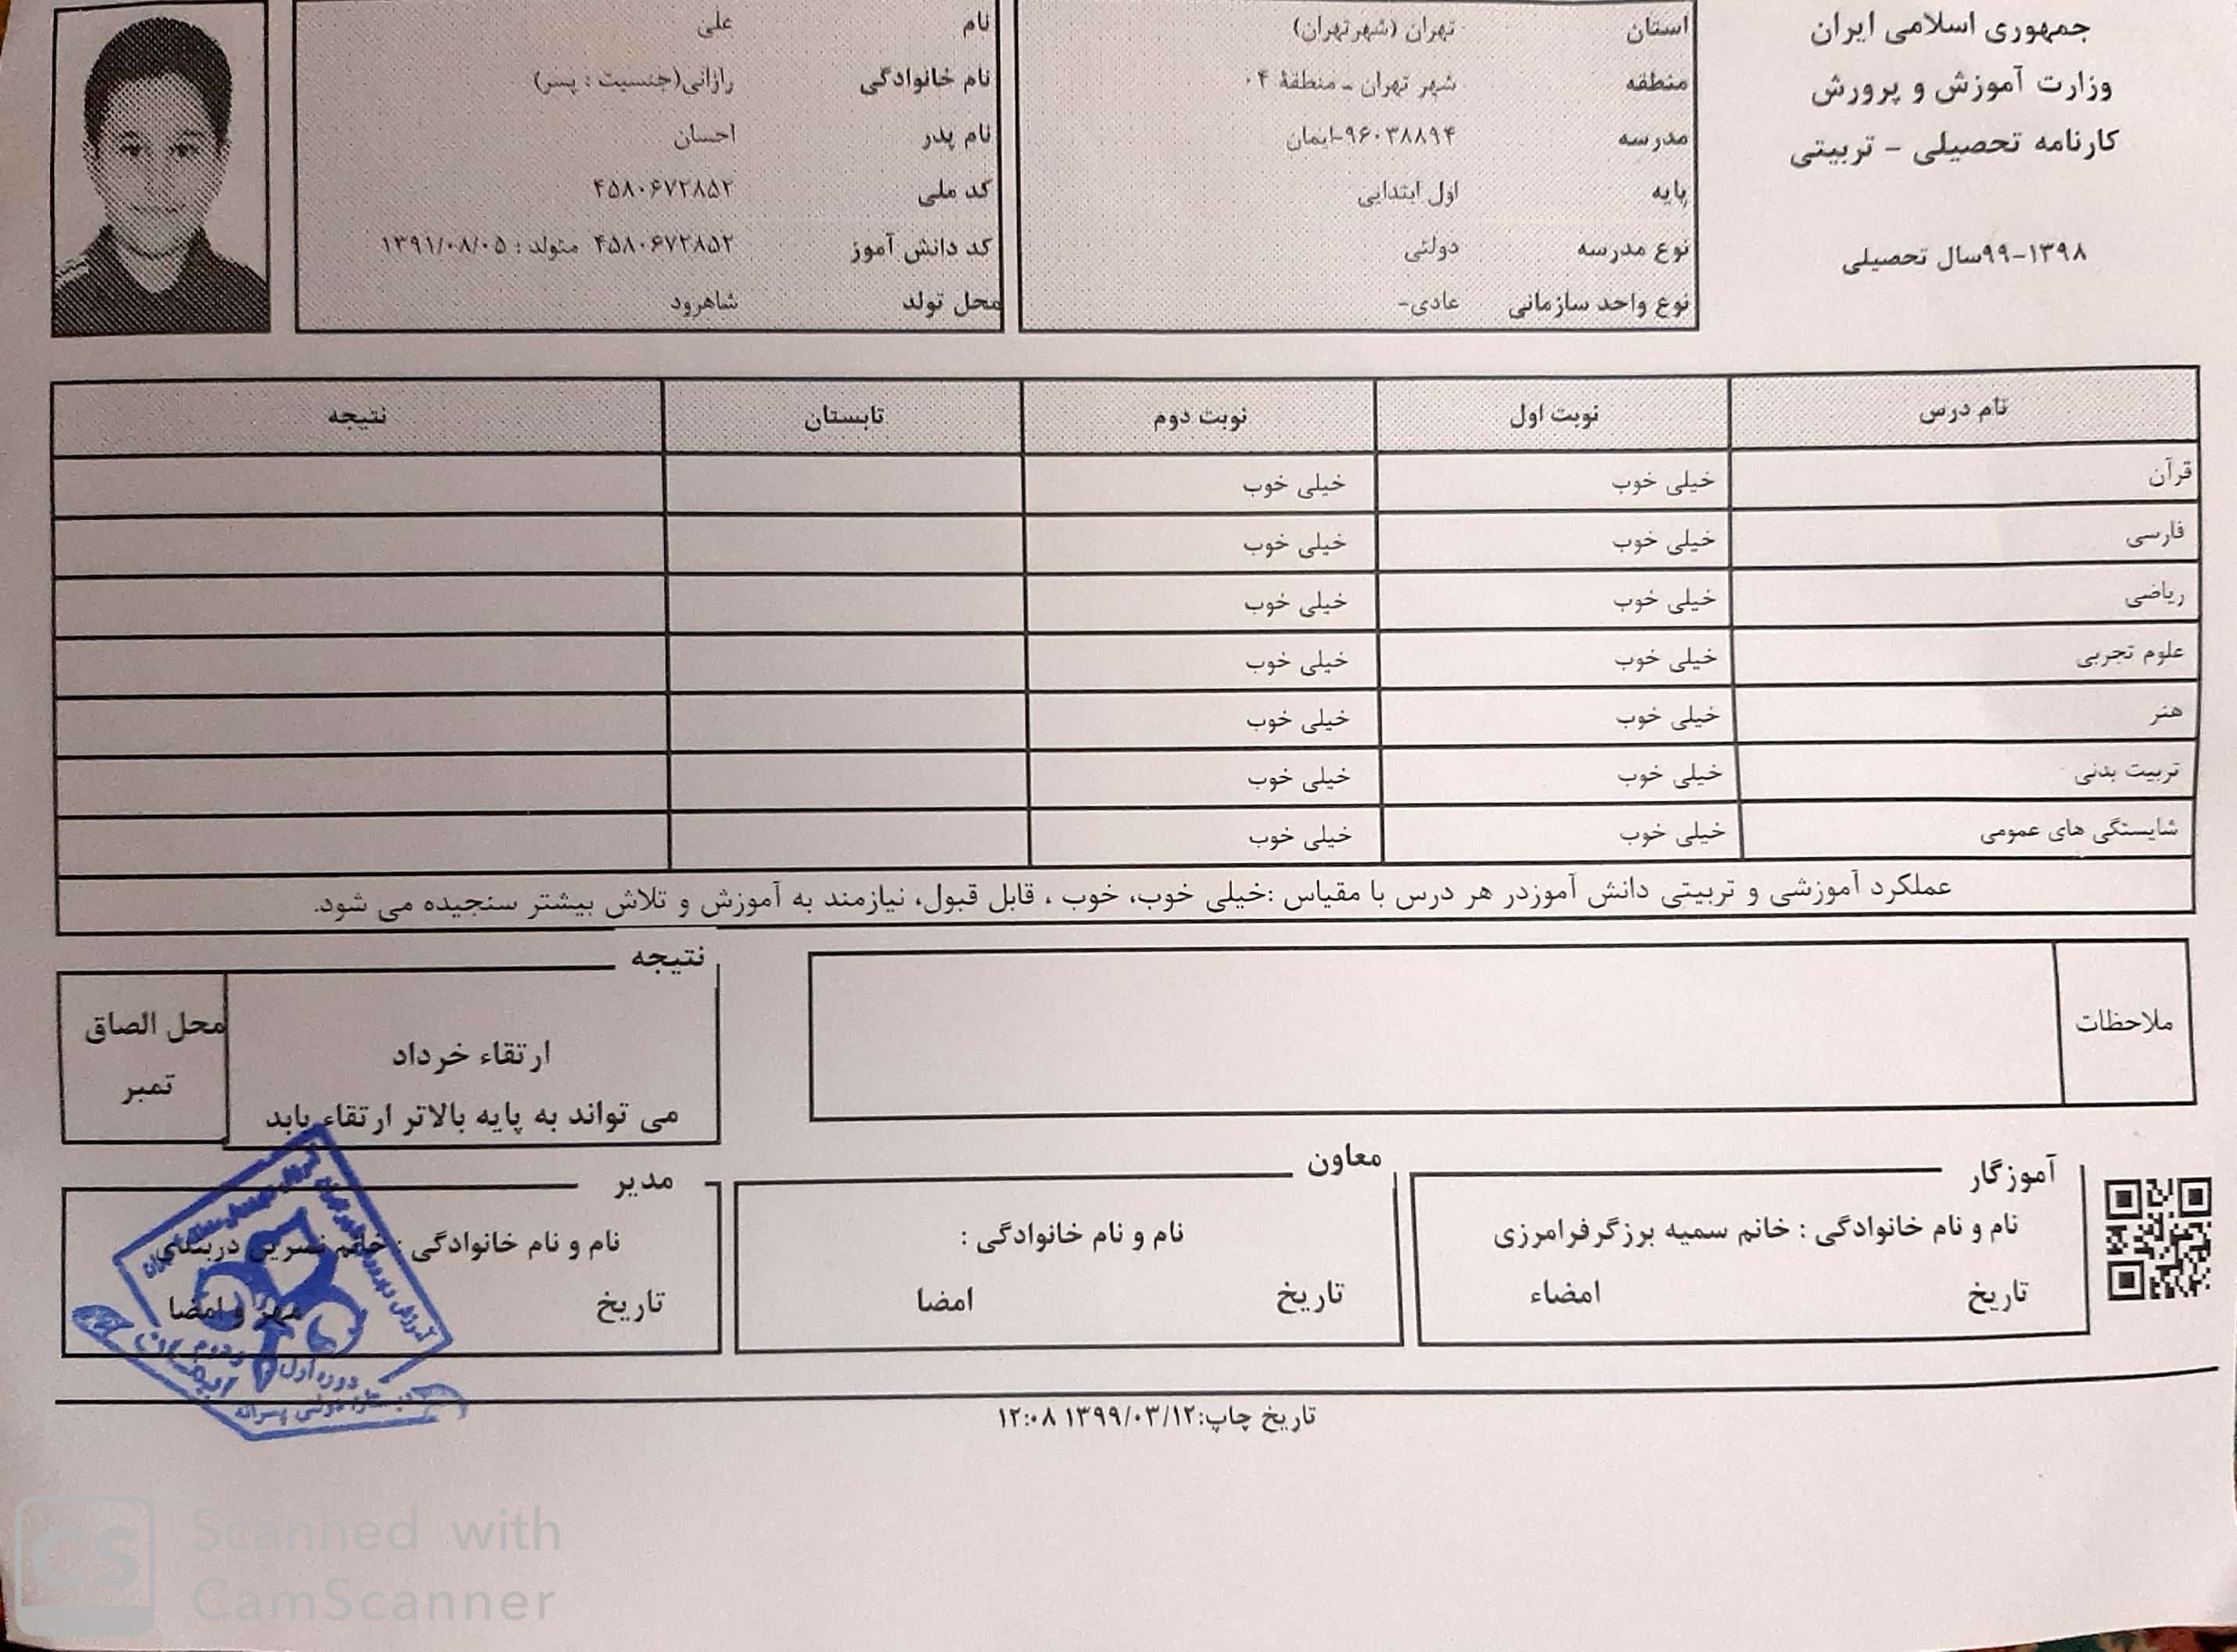 جمهوری اسلامی ایران
وزارت آموزش و پرورش
کارنامه تحصیلی - تربیتی
۱۳۹۸-۹۹سال تحصیلی
استان تهران (شهرتهران)
منطقه شهر تهران - منطقهٔ ۰۴
مدرسه ۹۶۰۳۸۸۹۴-ایمان
پایه اول ابتدایی
نوع مدرسه دولتی
نوع واحد سازمانی عادی-
نام علی
نام خانوادگی رازانی(جنسیت : پسر)
نام پدر احسان
کد ملی ۴۵۸۰۶۷۲۸۵۲
کد دانش آموز ۴۵۸۰۶۷۲۸۵۲ متولد : ۱۳۹۱/۰۸/۰۵
محل تولد شاهرود
نام درس نوبت اول نوبت دوم تابستان نتیجه
قرآن خیلی خوب خیلی خوب
فارسی خیلی خوب خیلی خوب
ریاضی خیلی خوب خیلی خوب
علوم تجربی خیلی خوب خیلی خوب
هنر خیلی خوب خیلی خوب
تربیت بدنی خیلی خوب خیلی خوب
شایستگی های عمومی خیلی خوب خیلی خوب
عملکرد آموزشی و تربیتی دانش آموزدر هر درس با مقیاس :خیلی خوب، خوب ، قابل قبول، نیازمند به آموزش و تلاش بیشتر سنجیده می شود.
ملاحظات
نتیجه
ارتقاء خرداد
می تواند به پایه بالاتر ارتقاء یابد
محل الصاق
تمبر
آموزگار
نام و نام خانوادگی : خانم سمیه برزگرفرامرزی
تاریخ امضاء
معاون
نام و نام خانوادگی :
تاریخ امضا
مدیر
نام و نام خانوادگی : خانم نسرین دربندی
تاریخ مهر و امضا
دوره اول و دوم
تاریخ چاپ:۱۳۹۹/۰۳/۱۲ ۱۲:۰۸
CS
Scanned with
CamScanner